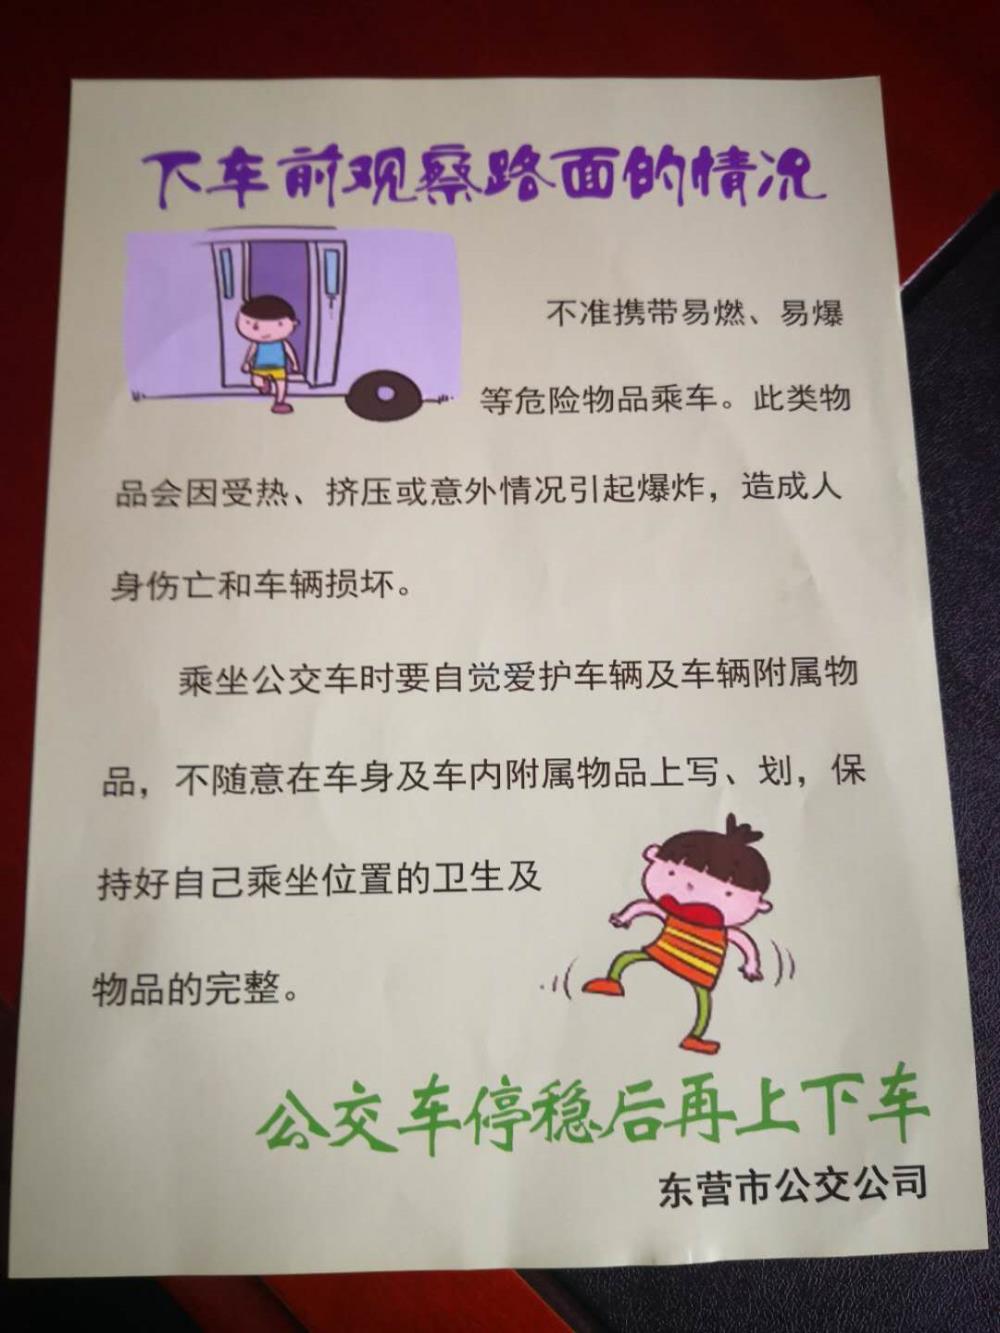 下车前观察路面的情况
不准携带易燃、易爆
等危险物品乘车。此类物
品会因受热、挤压或意外情况引起爆炸，造成人
身伤亡和车辆损坏。
乘坐公交车时要自觉爱护车辆及车辆附属物
品，不随意在车身及车内附属物品上写、划，保
持好自己乘坐位置的卫生及
物品的完整。
公交车停稳后再上下车
东营市公交公司